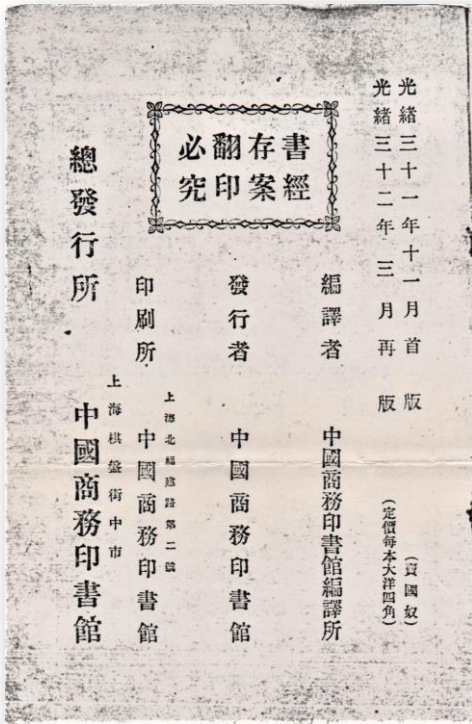 光緒三十一年十一月首版 (賣國奴)
光緒三十二年三月再版 (定價每本大洋四角)
書經
存案
翻印
必究
編譯者 中國商務印書館編譯所
發行者 中國商務印書館
上海北福建路第二號
印刷所 中國商務印書館
上海棋盤街中市
總發行所 中國商務印書館